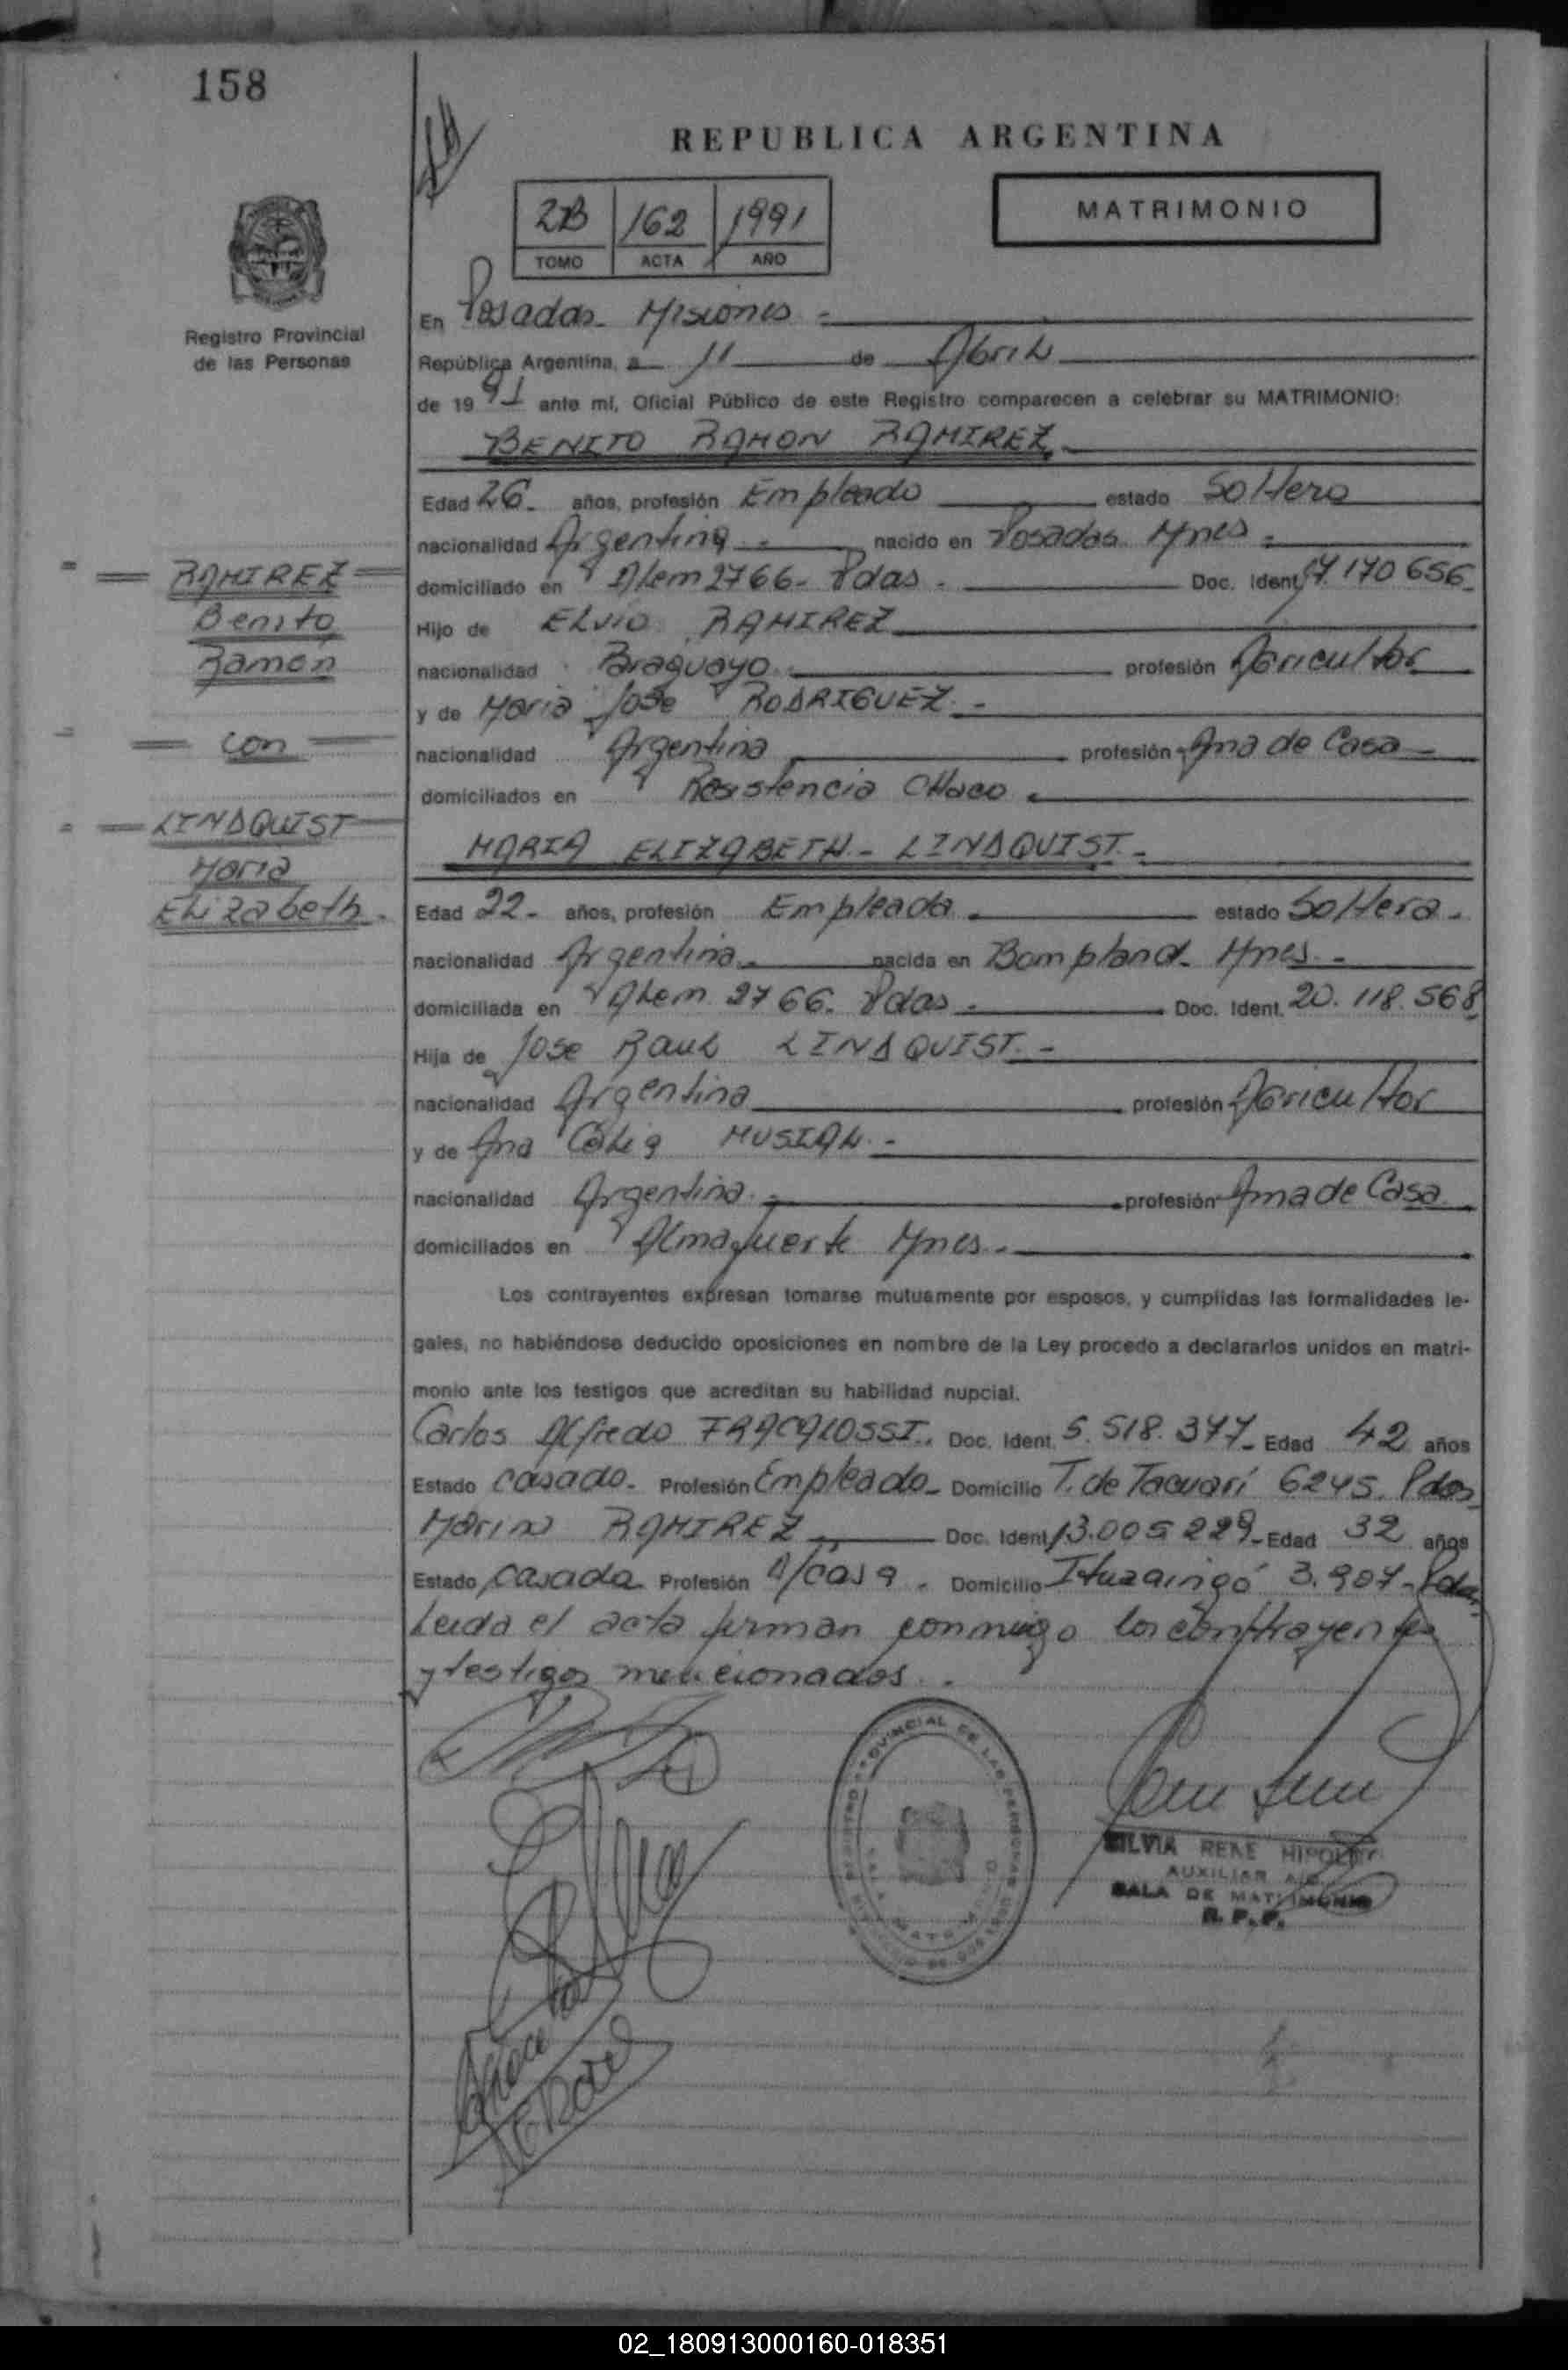 158
REPUBLICA ARGENTINA
MATRIMONIO
2B 162 1991
TOMO ACTA AÑO
Registro Provincial
de las Personas
En Posadas Misiones
República Argentina, a 11 de Abril
de 1991 ante mí, Oficial Público de este Registro comparecen a celebrar su MATRIMONIO:
BENITO RAMON RAMIREZ
Edad 26 años, profesión Empleado estado Soltero
nacionalidad Argentina nacido en Posadas Mnes
domiciliado en Alem 2766 Pdas. Doc. Ident. 17.170656
Hijo de ELVIO RAMIREZ
nacionalidad Paraguayo profesión Agricultor
y de Maria Jose RODRIGUEZ
nacionalidad Argentina profesión Ama de Casa
domiciliados en Resistencia Chaco
RAMIREZ
Benito
Ramon
con
LINDQUIST
Maria
Elizabeth
MARIA ELIZABETH LINDQUIST
Edad 22 años, profesión Empleada estado Soltera
nacionalidad Argentina nacida en Bompland Mnes
domiciliada en Alem 2766 Pdas Doc. Ident. 20.118.568
Hija de Jose Raul LINDQUIST
nacionalidad Argentina profesión Agricultor
y de Ana MUSIAL
nacionalidad Argentina profesión Ama de Casa
domiciliados en Almafuerte Mnes
Los contrayentes expresan tomarse mutuamente por esposos, y cumplidas las formalidades le-
gales, no habiéndose deducido oposiciones en nombre de la Ley procedo a declararlos unidos en matri-
monio ante los testigos que acreditan su habilidad nupcial.
Carlos Alfredo FRACALOSSI. Doc. Ident. 5.518.377 Edad 42 años
Estado casado. Profesión Empleado Domicilio T. de Tacuarí 6245. Pdas
RAMIREZ Doc. Ident. 13.005229 Edad 32 años
Estado casada Profesión A/casa. Domicilio Ituzaingó 3.907 Pdas
Leida el acta firman conmigo los contrayentes
y testigos mencionados.
REGISTRO PROVINCIAL DE LAS PERSONAS
SILVIA RENE HIPOLITO
AUXILIAR
SALA DE MATRIMONIO
R. P. P.
02_180913000160-018351